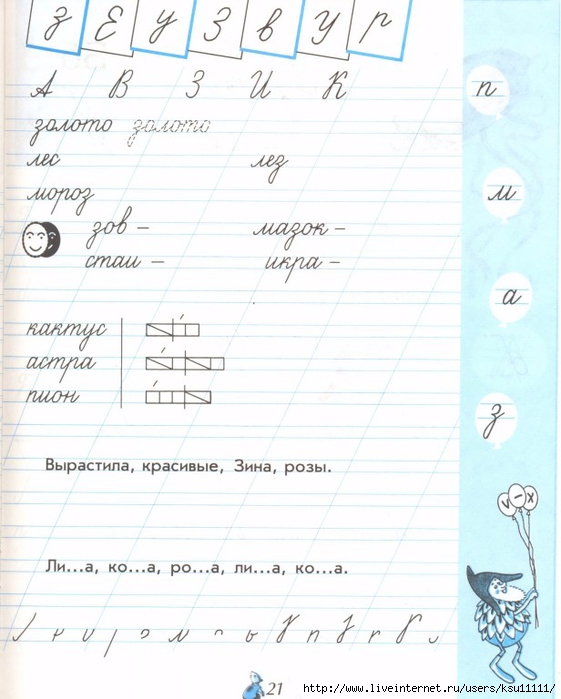 з Е у З в У г
А В З И К
золото золото
лес лез
мороз
зов – мазок –
стаи – икра –
кактус
астра
пион
Вырастила, красивые, Зина, розы.
Ли...а, ко...а, ро...а, ли...а, ко...а.
п
м
а
з
v – x
21
http://www.liveinternet.ru/users/ksu11111/